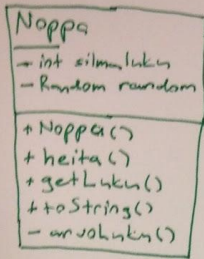 Noppa
- int silmaluku
- Random random
+ Noppa()
+ heita()
+ getLuku()
+ toString()
- arvoLuku()